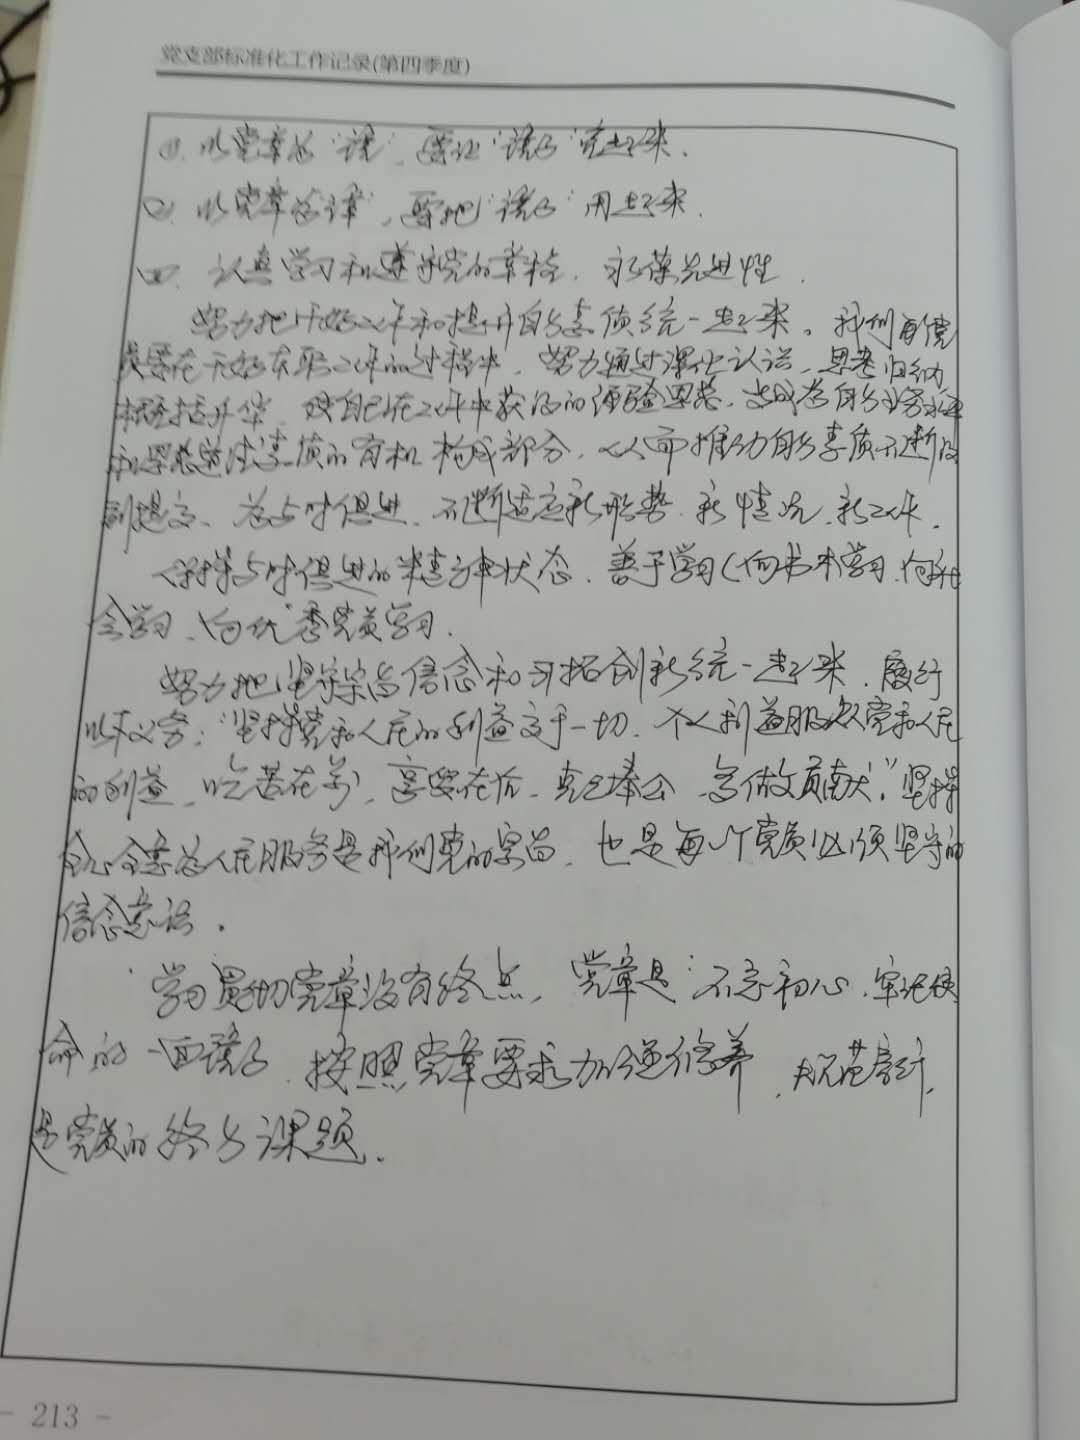 党支部标准化工作记录(第四季度)
①. 以党章为"镜", 要让"镜子"亮起来.
②. 以党章为"镜", 要把"镜子"用起来.
四. 认真学习和遵守党的章程, 永葆先进性.
努力把干好工作和提升自身素质统一起来。我们每个党
员要在干好本职工作的过程中, 努力通过深化认识, 思考归纳
概括升华, 使自己在工作中获得的经验思想, 变成为自身业务
素质的有机构成部分, 从而推动自身素质不断得
到提高、为与时俱进、不断适应新形势、新情况、新工作.
保持与时俱进的精神状态, 善于学习(向书本学习、向社
会学习、向优秀党员学习.
努力把坚守宗旨信念和开拓创新统一起来, 履行
以下义务:"坚持党和人民的利益高于一切, 个人利益服从党和人民
的利益, 吃苦在前, 享受在后, 克己奉公, 多做贡献", 坚持
全心全意为人民服务是我们党的宗旨, 也是每一个党员必须坚守的
信念意识.
学习贯彻党章没有终点, 党章是"不忘初心, 牢记使
命的一面镜子, 按照党章要求加强修养, 规范言行,
是党员的终身课题.
- 213 -